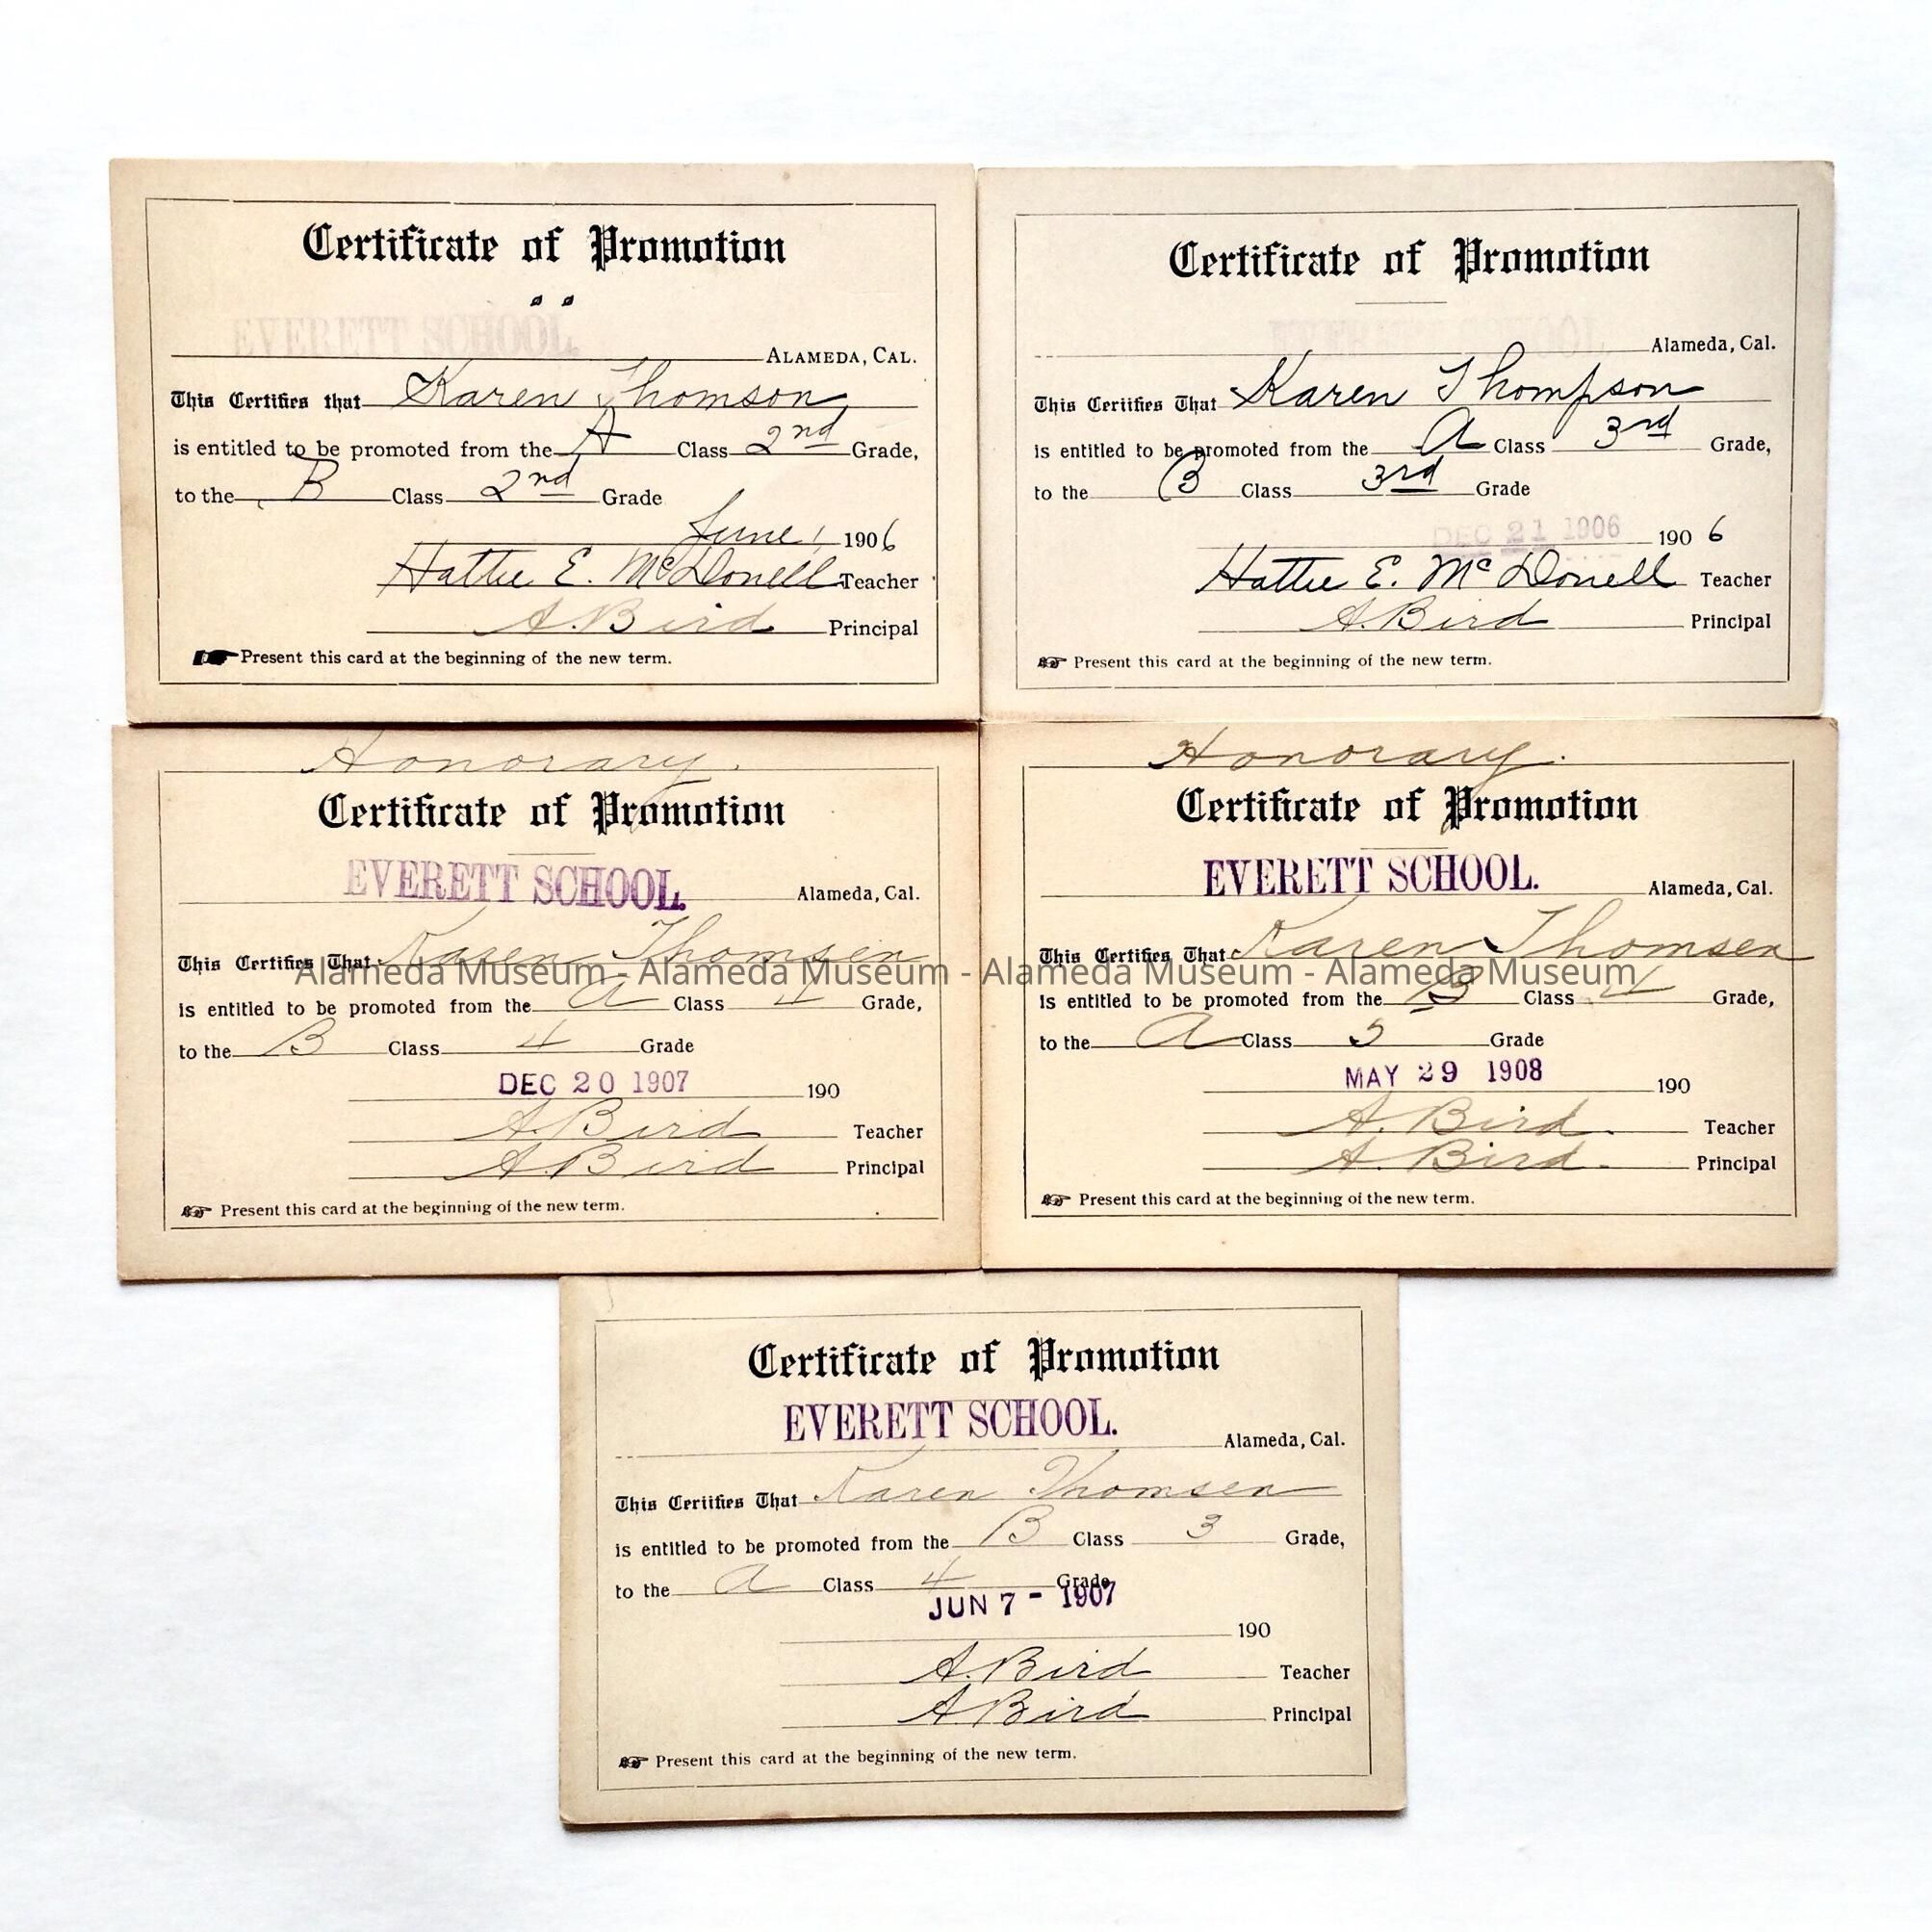 Certificate of Promotion
EVERETT SCHOOL.
ALAMEDA, CAL.
This Certifies that Karen Thomson
is entitled to be promoted from the A Class 2nd Grade,
to the B Class 2nd Grade
June 1 1906
Hattie E. McDonell Teacher
A. Bird Principal
Present this card at the beginning of the new term.
Certificate of Promotion
EVERETT SCHOOL
Alameda, Cal.
This Certifies That Karen Thompson
is entitled to be promoted from the A Class 3rd Grade,
to the B Class 3rd Grade
DEC 21 1906 1906
Hattie E. McDonell Teacher
A. Bird Principal
Present this card at the beginning of the new term.
Honorary.
Certificate of Promotion
EVERETT SCHOOL.
Alameda, Cal.
This Certifies That Karen Thomsen
is entitled to be promoted from the A Class 4 Grade,
to the B Class 4 Grade
DEC 20 1907 190
A. Bird Teacher
A. Bird Principal
Present this card at the beginning of the new term.
Honorary.
Certificate of Promotion
EVERETT SCHOOL.
Alameda, Cal.
This Certifies That Karen Thomsen
is entitled to be promoted from the B Class 4 Grade,
to the A Class 5 Grade
MAY 29 1908 190
A. Bird. Teacher
A. Bird. Principal
Present this card at the beginning of the new term.
Alameda Museum - Alameda Museum - Alameda Museum - Alameda Museum
Certificate of Promotion
EVERETT SCHOOL.
Alameda, Cal.
This Certifies That Karen Thomsen
is entitled to be promoted from the B Class 3 Grade,
to the A Class 4 Grade
JUN 7 - 1907
190
A. Bird Teacher
A Bird Principal
Present this card at the beginning of the new term.